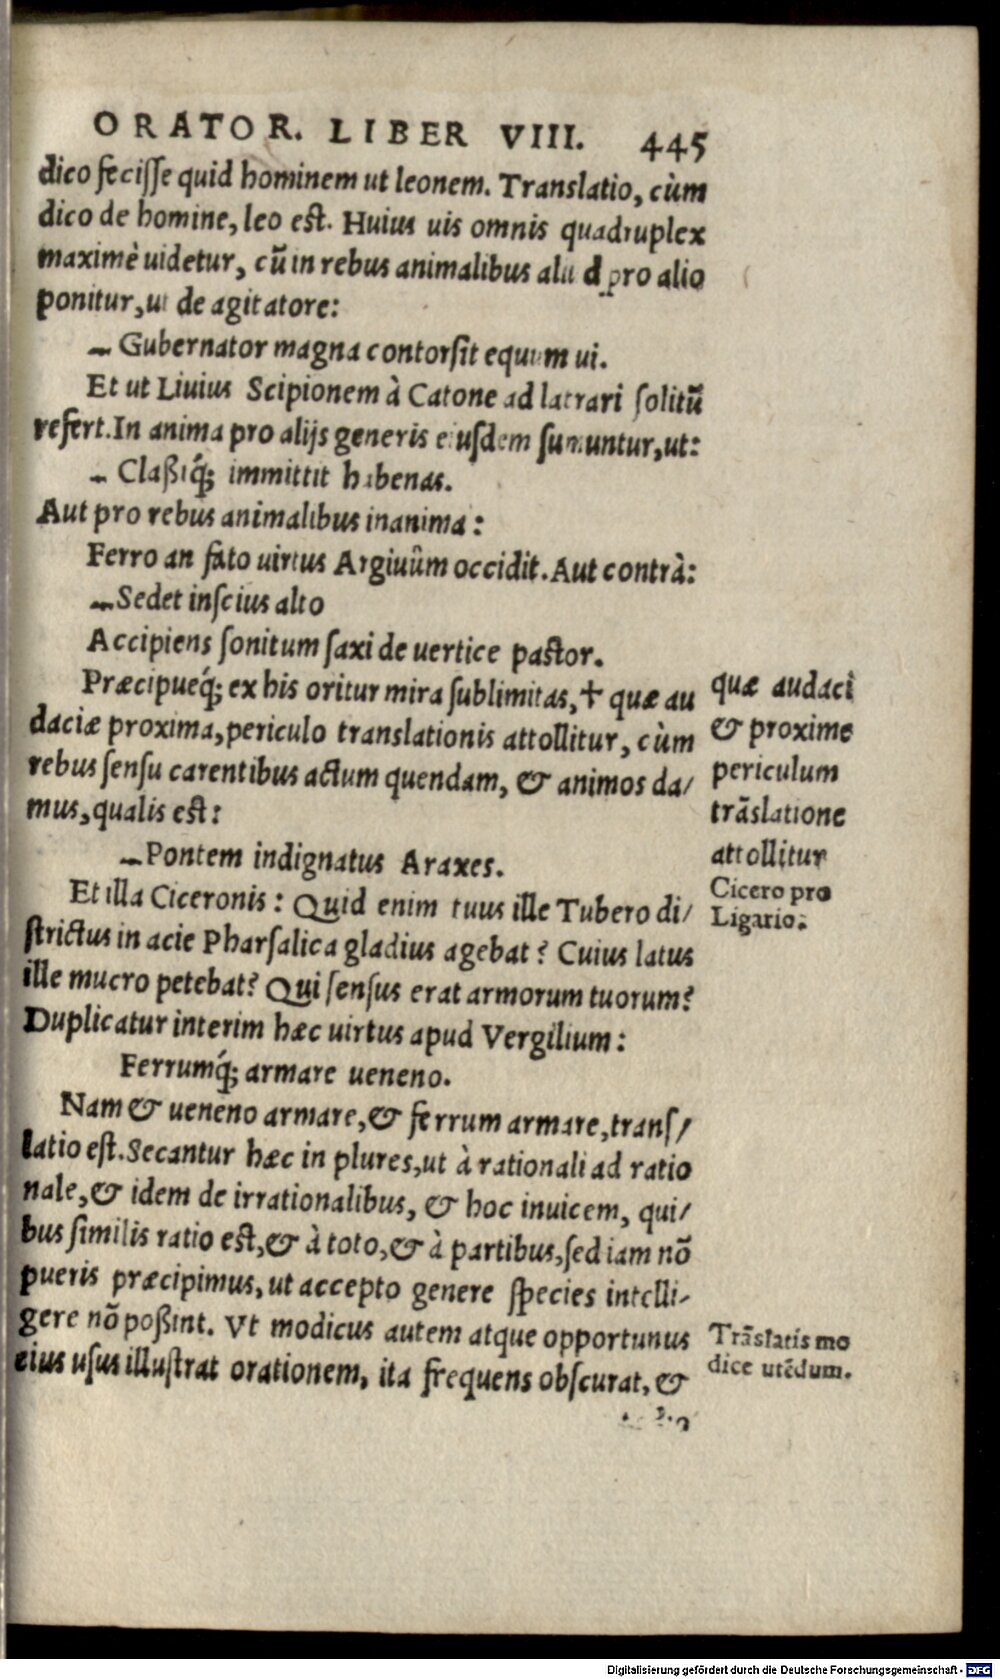 ORATOR. LIBER VIII. 445
dico fecisse quid hominem ut leonem. Translatio, cùm
dico de homine, leo est. Huius uis omnis quadruplex
maximè uidetur, cũ in rebus animalibus aliud pro alio
ponitur, ut de agitatore:
– Gubernator magna contorsit equum ui.
Et ut Liuius Scipionem à Catone ad latrari solitũ
refert. In anima pro alijs generis eiusdem sumuntur, ut:
– Claßiq́; immittit habenas.
Aut pro rebus animalibus inanima:
Ferro an fato uirtus Argiuûm occidit. Aut contrà:
– Sedet inscius alto
Accipiens sonitum saxi de uertice pastor.
Præcipueq́; ex his oritur mira sublimitas, † quæ au
daciæ proxima, periculo translationis attollitur, cùm
rebus sensu carentibus actum quendam, & animos da/
mus, qualis est:
– Pontem indignatus Araxes.
Et illa Ciceronis: Quid enim tuus ille Tubero di/
strictus in acie Pharsalica gladius agebat? Cuius latus
ille mucro petebat? Qui sensus erat armorum tuorum?
Duplicatur interim hæc uirtus apud Vergilium:
Ferrumq́; armare ueneno.
Nam & ueneno armare, & ferrum armare, trans/
latio est. Secantur hæc in plures, ut à rationali ad ratio
nale, & idem de irrationalibus, & hoc inuicem, qui/
bus similis ratio est, & à toto, & à partibus, sed iam nõ
pueris præcipimus, ut accepto genere species intelli-
gere nõ poßint. Vt modicus autem atque opportunus
eius usus illustrat orationem, ita frequens obscurat, &
quæ audaci
& proxime
periculum
trãslatione
attollitur
Cicero pro
Ligario.
Trãslatis mo
dice utẽdum.
Digitalisierung gefördert durch die Deutsche Forschungsgemeinschaft - DFG